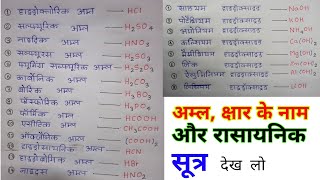 ① हाइड्रोक्लोरिक अम्ल — HCl
② सल्फ्यूरिक अम्ल — H₂SO₄
③ नाइट्रिक अम्ल — HNO₃
④ सल्फ्यूरस अम्ल — H₂SO₃
अम्ल — H₂S₂O₇
⑥ कार्बोनिक अम्ल — H₂CO₃
⑦ बोरिक अम्ल — H₃BO₃
⑧ फॉस्फोरिक अम्ल — H₃PO₄
⑨ फॉर्मिक अम्ल — HCOOH
⑩ एसीटिक अम्ल — CH₃COOH
⑪ ऑक्जैलिक अम्ल — (COOH)₂
⑫ हाइड्रोसायनिक अम्ल — HCN
⑬ हाइड्रोब्रोमिक अम्ल — HBr
⑭ नाइट्रस अम्ल — HNO₂
① सोडियम हाइड्रॉक्साइड — NaOH
② पोटैशियम हाइड्रॉक्साइड — KOH
③ अमोनियम हाइड्रॉक्साइड — NH₄OH
④ कैल्सियम हाइड्रॉक्साइड — Ca(OH)₂
⑤ मैग्नीशियम हाइड्रॉक्साइड
⑥ जिंक हाइड्रॉक्साइड
हाइड्रॉक्साइड
LiOH
अम्ल, क्षार के नाम
और रासायनिक
सूत्र देख लो